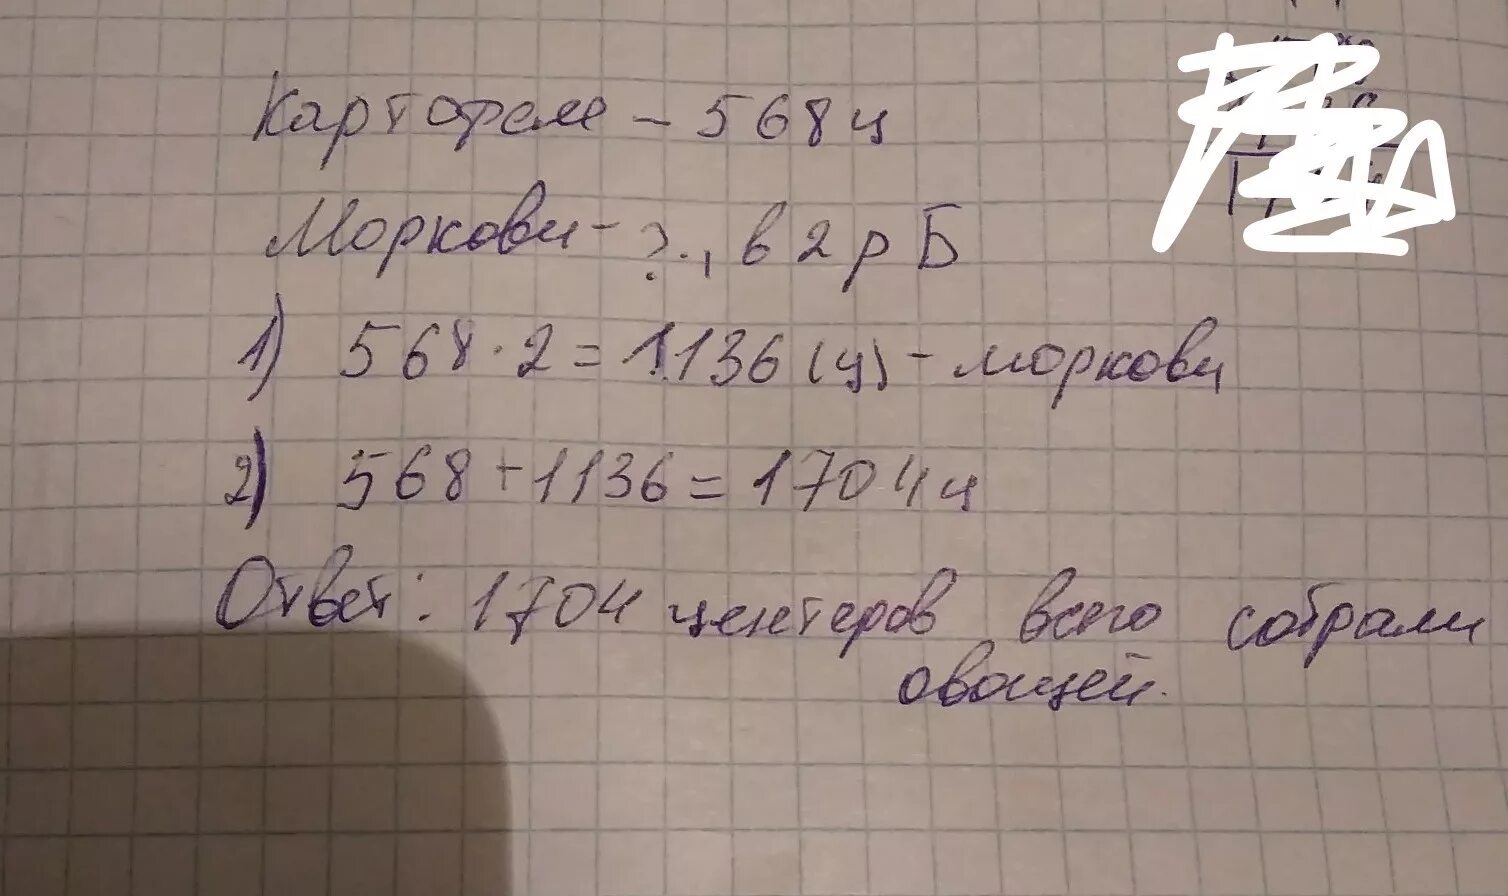 Картофеля - 568 ц
Моркови - ?, в 2 р Б
1) 568 · 2 = 1136 (ц) - моркови
2) 568 + 1136 = 1704 ц
Ответ: 1704 центеров всего собрали
овощей.